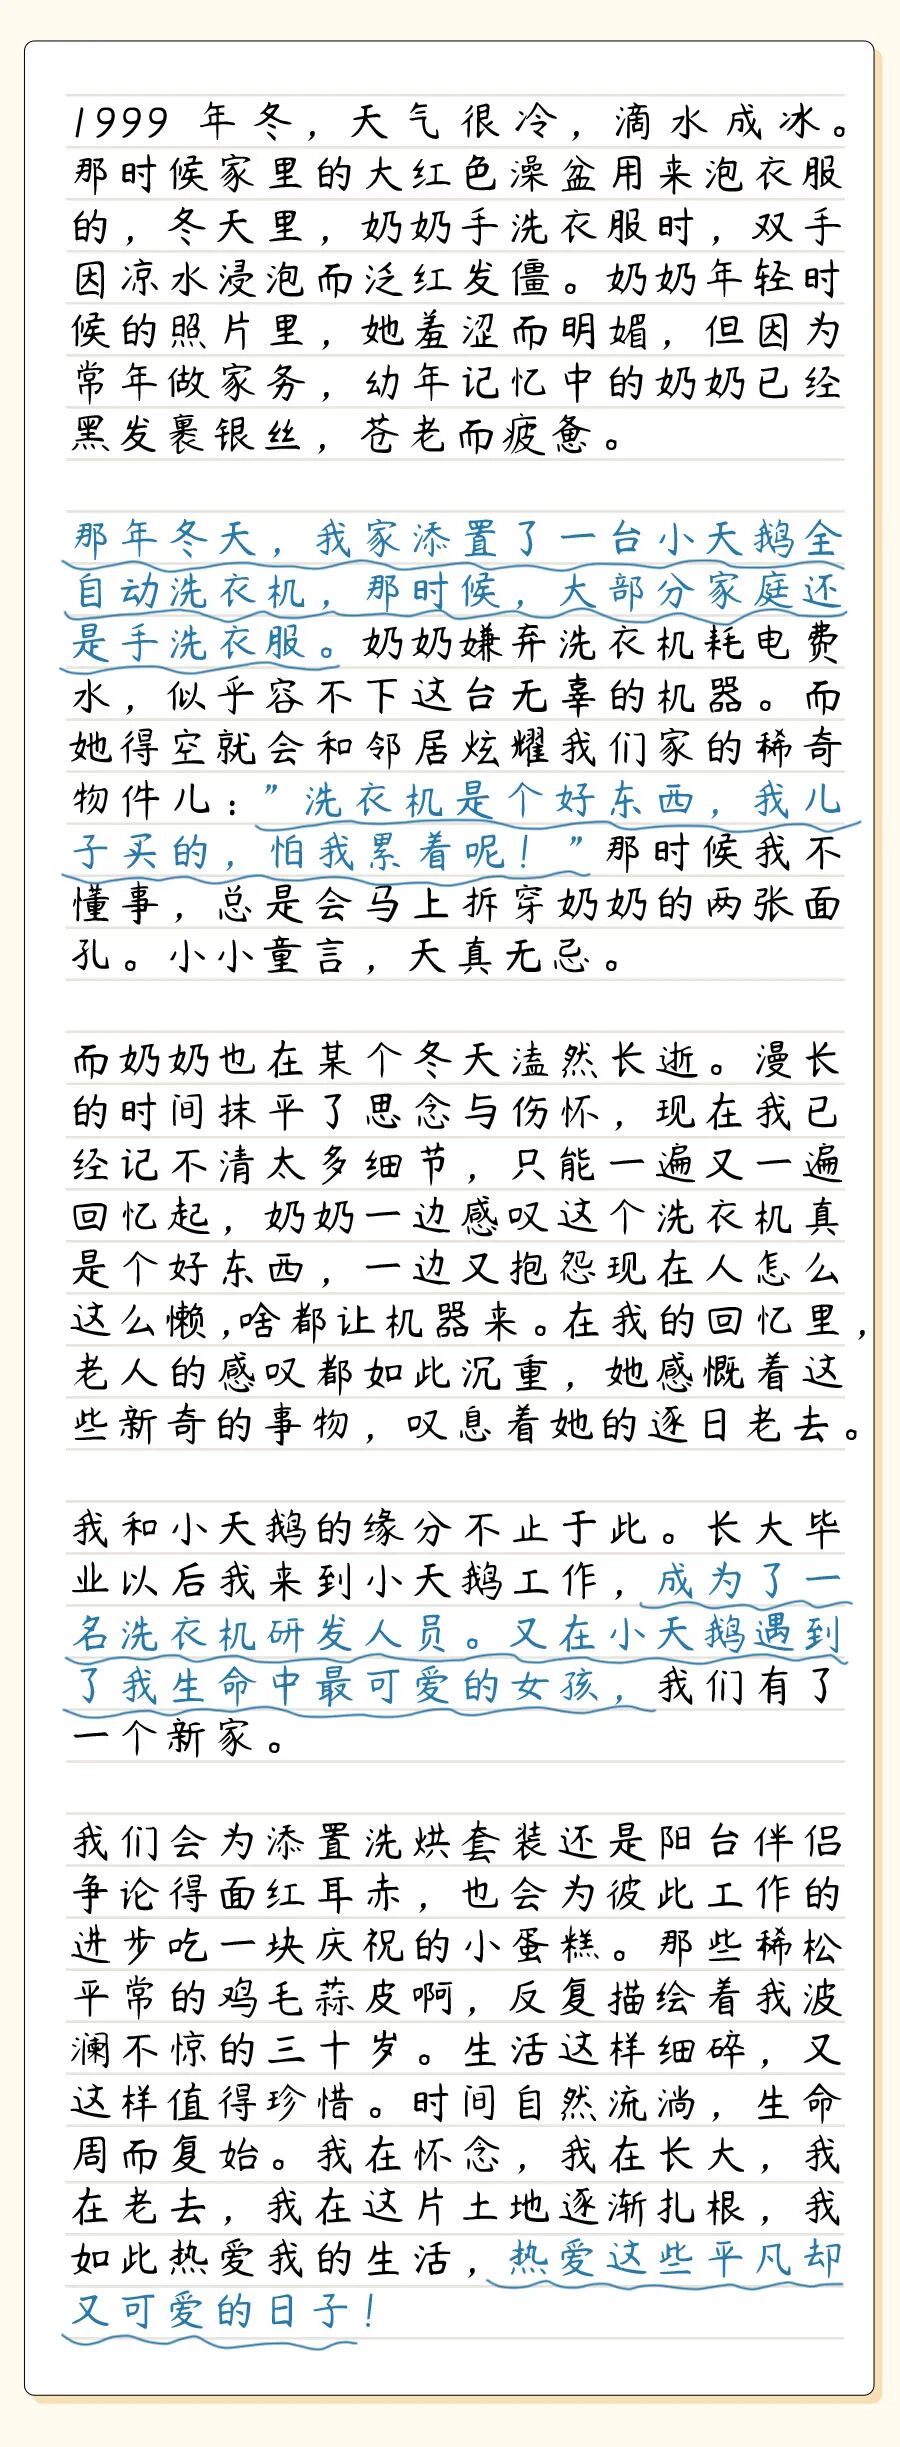 1999 年冬，天气很冷，滴水成冰。
那时候家里的大红色澡盆用来泡衣服
的，冬天里，奶奶手洗衣服时，双手
因凉水浸泡而泛红发僵。奶奶年轻时
候的照片里，她羞涩而明媚，但因为
常年做家务，幼年记忆中的奶奶已经
黑发裹银丝，苍老而疲惫。
那年冬天，我家添置了一台小天鹅全
自动洗衣机，那时候，大部分家庭还
是手洗衣服。奶奶嫌弃洗衣机耗电费
水，似乎容不下这台无辜的机器。而
她得空就会和邻居炫耀我们家的稀奇
物件儿：”洗衣机是个好东西，我儿
子买的，怕我累着呢！”那时候我不
懂事，总是会马上拆穿奶奶的两张面
孔。小小童言，天真无忌。
而奶奶也在某个冬天溘然长逝。漫长
的时间抹平了思念与伤怀，现在我已
经记不清太多细节，只能一遍又一遍
回忆起，奶奶一边感叹这个洗衣机真
是个好东西，一边又抱怨现在人怎么
这么懒,啥都让机器来。在我的回忆里，
老人的感叹都如此沉重，她感慨着这
些新奇的事物，叹息着她的逐日老去。
我和小天鹅的缘分不止于此。长大毕
业以后我来到小天鹅工作，成为了一
名洗衣机研发人员。又在小天鹅遇到
了我生命中最可爱的女孩，我们有了
一个新家。
我们会为添置洗烘套装还是阳台伴侣
争论得面红耳赤，也会为彼此工作的
进步吃一块庆祝的小蛋糕。那些稀松
平常的鸡毛蒜皮啊，反复描绘着我波
澜不惊的三十岁。生活这样细碎，又
这样值得珍惜。时间自然流淌，生命
周而复始。我在怀念，我在长大，我
在老去，我在这片土地逐渐扎根，我
如此热爱我的生活，热爱这些平凡却
又可爱的日子！